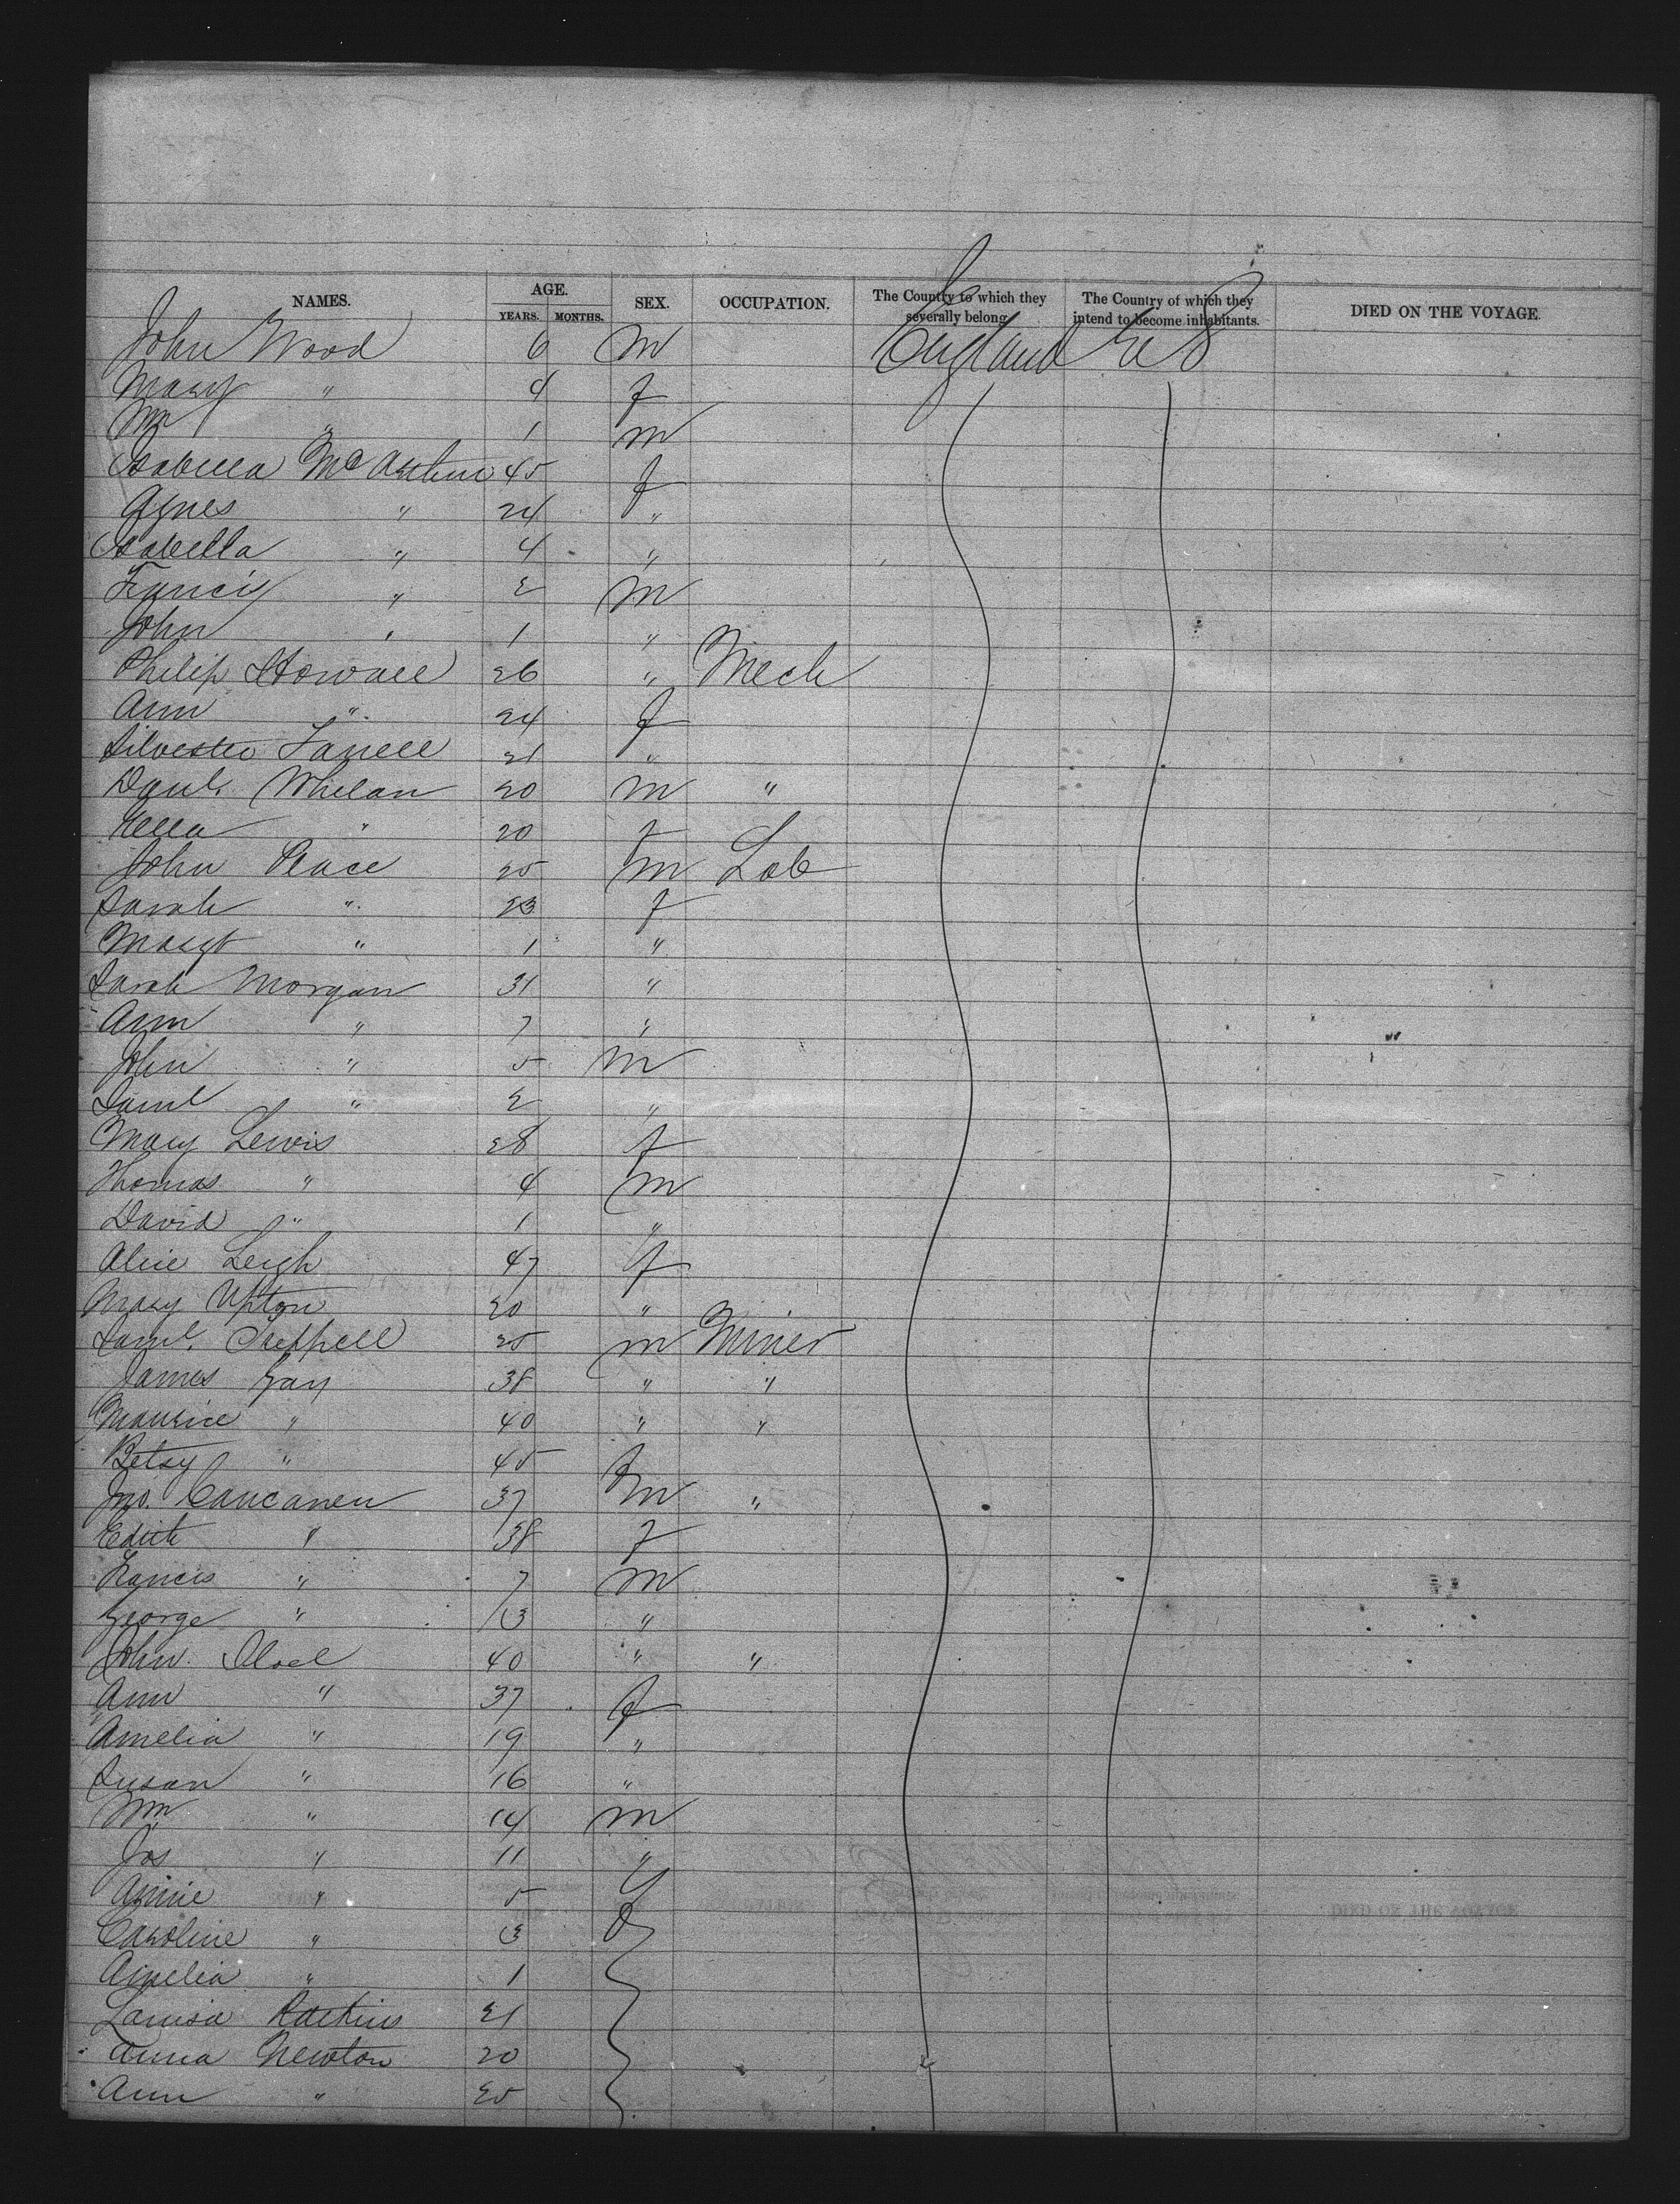 NAMES. AGE. YEARS. MONTHS. SEX. OCCUPATION. The Country to which they severally belong. The Country of which they intend to become inhabitants. DIED ON THE VOYAGE.
John Wood 6 m England U S
Mary " 4 f
Wm " 1 m
Isabella McArthur 45 f
Agnes " 24 "
Isabella " 4 "
Francis " 2 m
John " 1 "
Philip 26 " Mech
Ann " 24 f
Silvester Farrell 21 "
Danl. Whelan 20 m "
Ella " 20 f
John Peace 25 m Lab
Sarah " 23 f
Margt " 1 "
Sarah Morgan 31 "
Ann " 7 "
John " 5 m
Saml " 2 "
Mary Lewis 28 f
Thomas " 4 m
David " 1 "
Alice Leigh 47 f
Mary Upton 20 "
Saml. 25 m Miner
James Gay 38 " "
Maurice " 40 " "
Betsy " 45 f
Jno. 37 m "
Edith " 38 f
Francis " 7 m
George " 3 "
John 40 " "
Ann " 37 f
Amelia " 19 "
Susan " 16 "
Wm " 14 m
Jos " 11 "
Annie " 5 f
Caroline " 3
Amelia " 1
Louisa 21
Anna Newton 20
Ann " 25